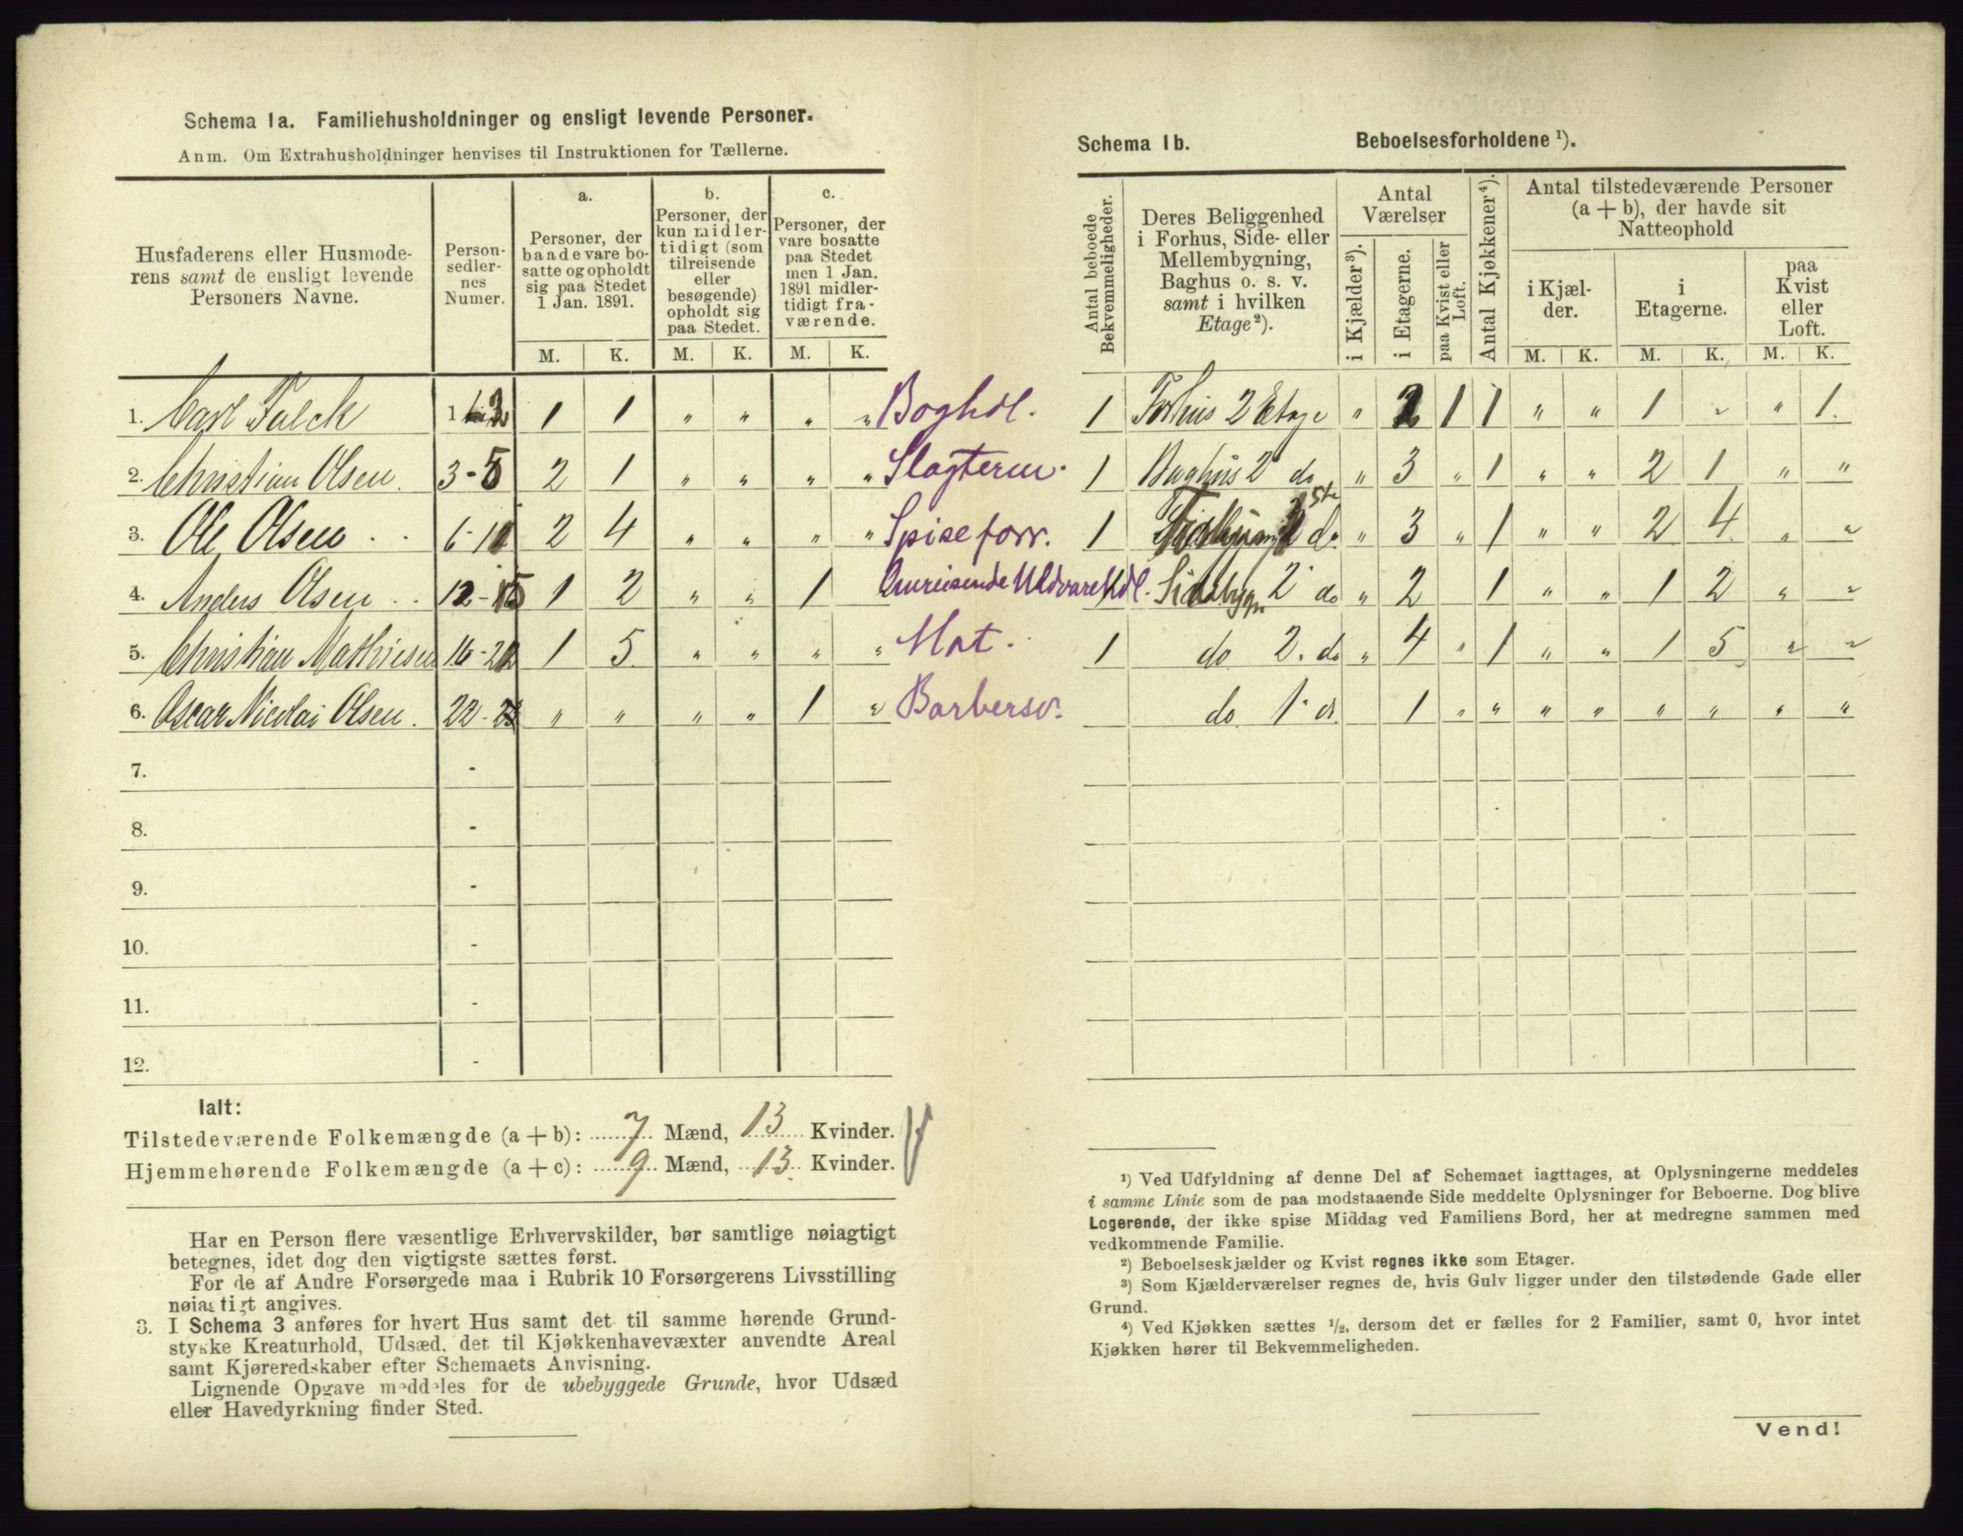 Schema 1a. Familiehusholdninger og ensligt levende Personer.
Anm. Om Extrahusholdninger henvises til Instruktionen for Tællerne.
Husfaderens eller Husmoderens samt de ensligt levende Personers Navne.
Personsedlernes Numer.
a.
Personer, der baade vare bosatte og opholdt sig paa Stedet 1 Jan. 1891.
b.
Personer, der kun midlertidigt (som tilreisende eller besøgende) opholdt sig paa Stedet.
c.
Personer, der vare bosatte paa Stedet men 1 Jan. 1891 midlertidigt fraværende.
M. K. M. K. M. K.
1. Carl Falck 1-2 1 1 " " " " Boghdl.
2. Christian Olsen. 3-5 2 1 " " " " Slagterm.
3. Ole Olsen 6-11 2 4 " " " " Spiseforr.
4. Anders Olsen 12-15 1 2 " " 1 Omreisende Uldvarehdl.
5. Christian Mathiesen 16-21 1 5 " " " " Mat.
6. Oscar Nicolai Olsen. 22- " " " " 1 " Barbersv.
7. -
8. -
9. -
10. -
11. -
12. -
Ialt:
Tilstedeværende Folkemængde (a + b): 7 Mænd, 13 Kvinder.
Hjemmehørende Folkemængde (a + c): 9 Mænd, 13 Kvinder.
Har en Person flere væsentlige Erhvervskilder, bør samtlige nøiagtigt
betegnes, idet dog den vigtigste sættes først.
For de af Andre Forsørgede maa i Rubrik 10 Forsørgerens Livsstilling
nøiagtigt angives.
3. I Schema 3 anføres for hvert Hus samt det til samme hørende Grund-
stykke Kreaturhold, Udsæd, det til Kjøkkenhavevæxter anvendte Areal
samt Kjøreredskaber efter Schemaets Anvisning.
Lignende Opgave meddeles for de ubebyggede Grunde, hvor Udsæd
eller Havedyrkning finder Sted.
Schema 1b. Beboelsesforholdene ¹).
Antal beboede Bekvemmeligheder.
Deres Beliggenhed i Forhus, Side- eller Mellembygning, Baghus o. s. v. samt i hvilken Etage²).
Antal Værelser
i Kjælder³).
i Etagerne.
paa Kvist eller Loft.
Antal Kjøkkener⁴).
Antal tilstedeværende Personer
(a + b), der havde sit
Natteophold
i Kjælder.
i Etagerne.
paa Kvist eller Loft.
M. K. M. K. M. K.
1 Forhus 2 Etage " 2 1 1 " " 1 " " 1.
1 Baghus 2 do " 3 " 1 " " 2 1 " "
1 do " 3 " 1 " " 2 4 " "
1 Sidebygn 2 do " 2 1 " " 1 2 " "
1 do 2. do " 4 " 1 " " 1 5 " "
do 1 do 1 " " " " " " " "
¹) Ved Udfyldning af denne Del af Schemaet iagttages, at Oplysningerne meddeles
i samme Linie som de paa modstaaende Side meddelte Oplysninger for Beboerne. Dog blive
Logerende, der ikke spise Middag ved Familiens Bord, her at medregne sammen med
vedkommende Familie.
²) Beboelseskjælder og Kvist regnes ikke som Etager.
³) Som Kjælderværelser regnes de, hvis Gulv ligger under den tilstødende Gade eller
Grund.
⁴) Ved Kjøkken sættes ½, dersom det er fælles for 2 Familier, samt 0, hvor intet
Kjøkken hører til Bekvemmeligheden.
Vend!